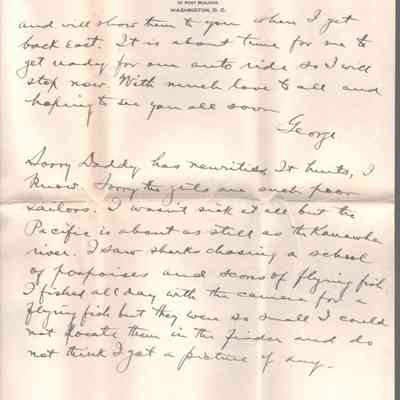 POST BUILDING
WASHINGTON, D. C.
and will show them to you when I get
back East. It is about time for me to
get ready for our auto ride so I will
stop now. With much love to all and
hoping to see you all soon
George
Sorry Daddy has neuritis. It hurts, I
know. Sorry the girls are such poor
sailors. I wasn't sick at all but the
Pacific is about as still as the Kanawha
river. I saw sharks chasing a school
of porpoises and scores of flying fish.
I fished all day with the camera for a
flying fish but they were so small I could
not locate them in the finder and do
not think I got a picture of any.